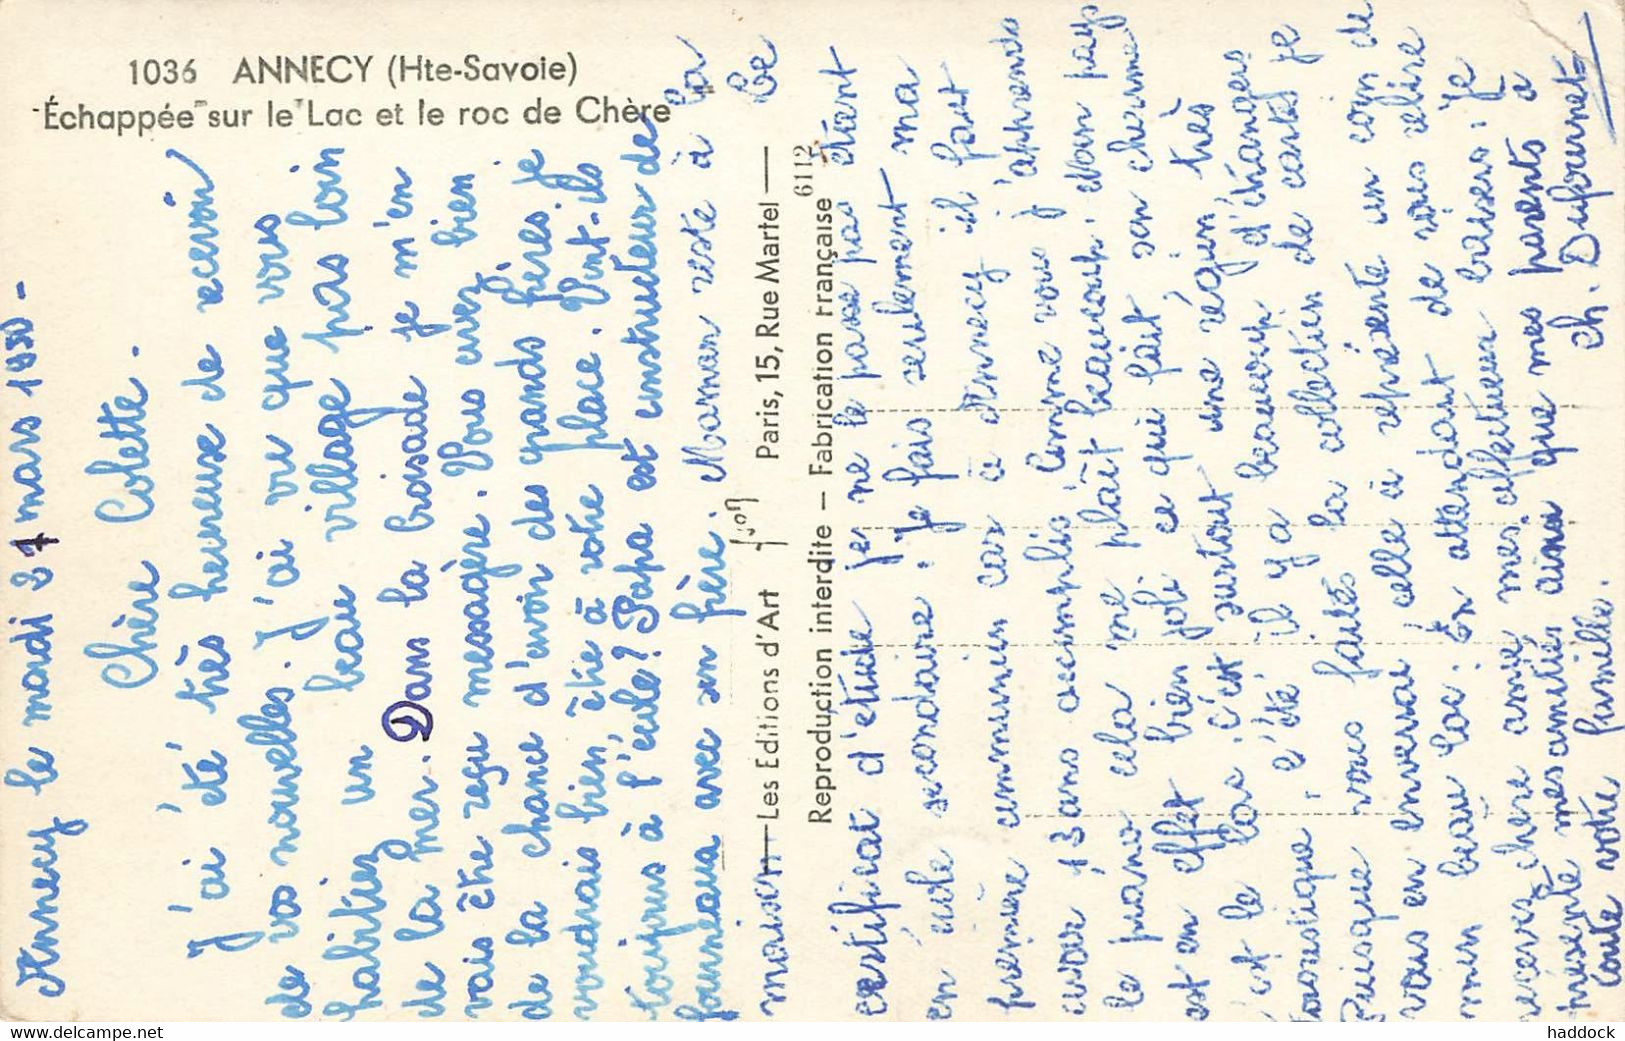 1036 ANNECY (Hte-Savoie)
Échappée sur le Lac et le roc de Chère
Annecy le mardi 21 mars 1950 -
Chère Colette.
J'ai été très heureuse de recevoir
de vos nouvelles. J'ai vu que vous
habitiez un beau village pas loin
de la mer. Dans la boisade je m'en
vais être reçu messagère. Vous avez bien
de la chance d'avoir des grands frères. je
voudrais bien être à votre place. Vont-ils
toujours à l'école? Papa est constructeur de
fourneaux avec son frère. Maman reste à la
maison Le
Les Editions d'Art Yvon Paris, 15, Rue Martel
Reproduction interdite – Fabrication Française 6112
certificat d'étude je ne le passe pas étant
en école secondaire. je fais seulement ma
première communion car à Annecy il faut
avoir 13 ans accomplis Comme vous j'apprends
le piano cela me plaît beaucoup. Mon pays
est en effet bien joli ce qui fait son cherme
c'est le lac. C'est surtout une région très
touristique. l'été il y a beaucoup d'étrangers
Puisque vous faites la collection de cartes je
vous en enverrai celle à représente un coin de
mon beau lac. En attendant de vous relire
recevez chère amie mes affectueux baisers. je
présente mes amitiés ainsi que mes parents à
toute votre famille.
Ch. Dufournet
haddock